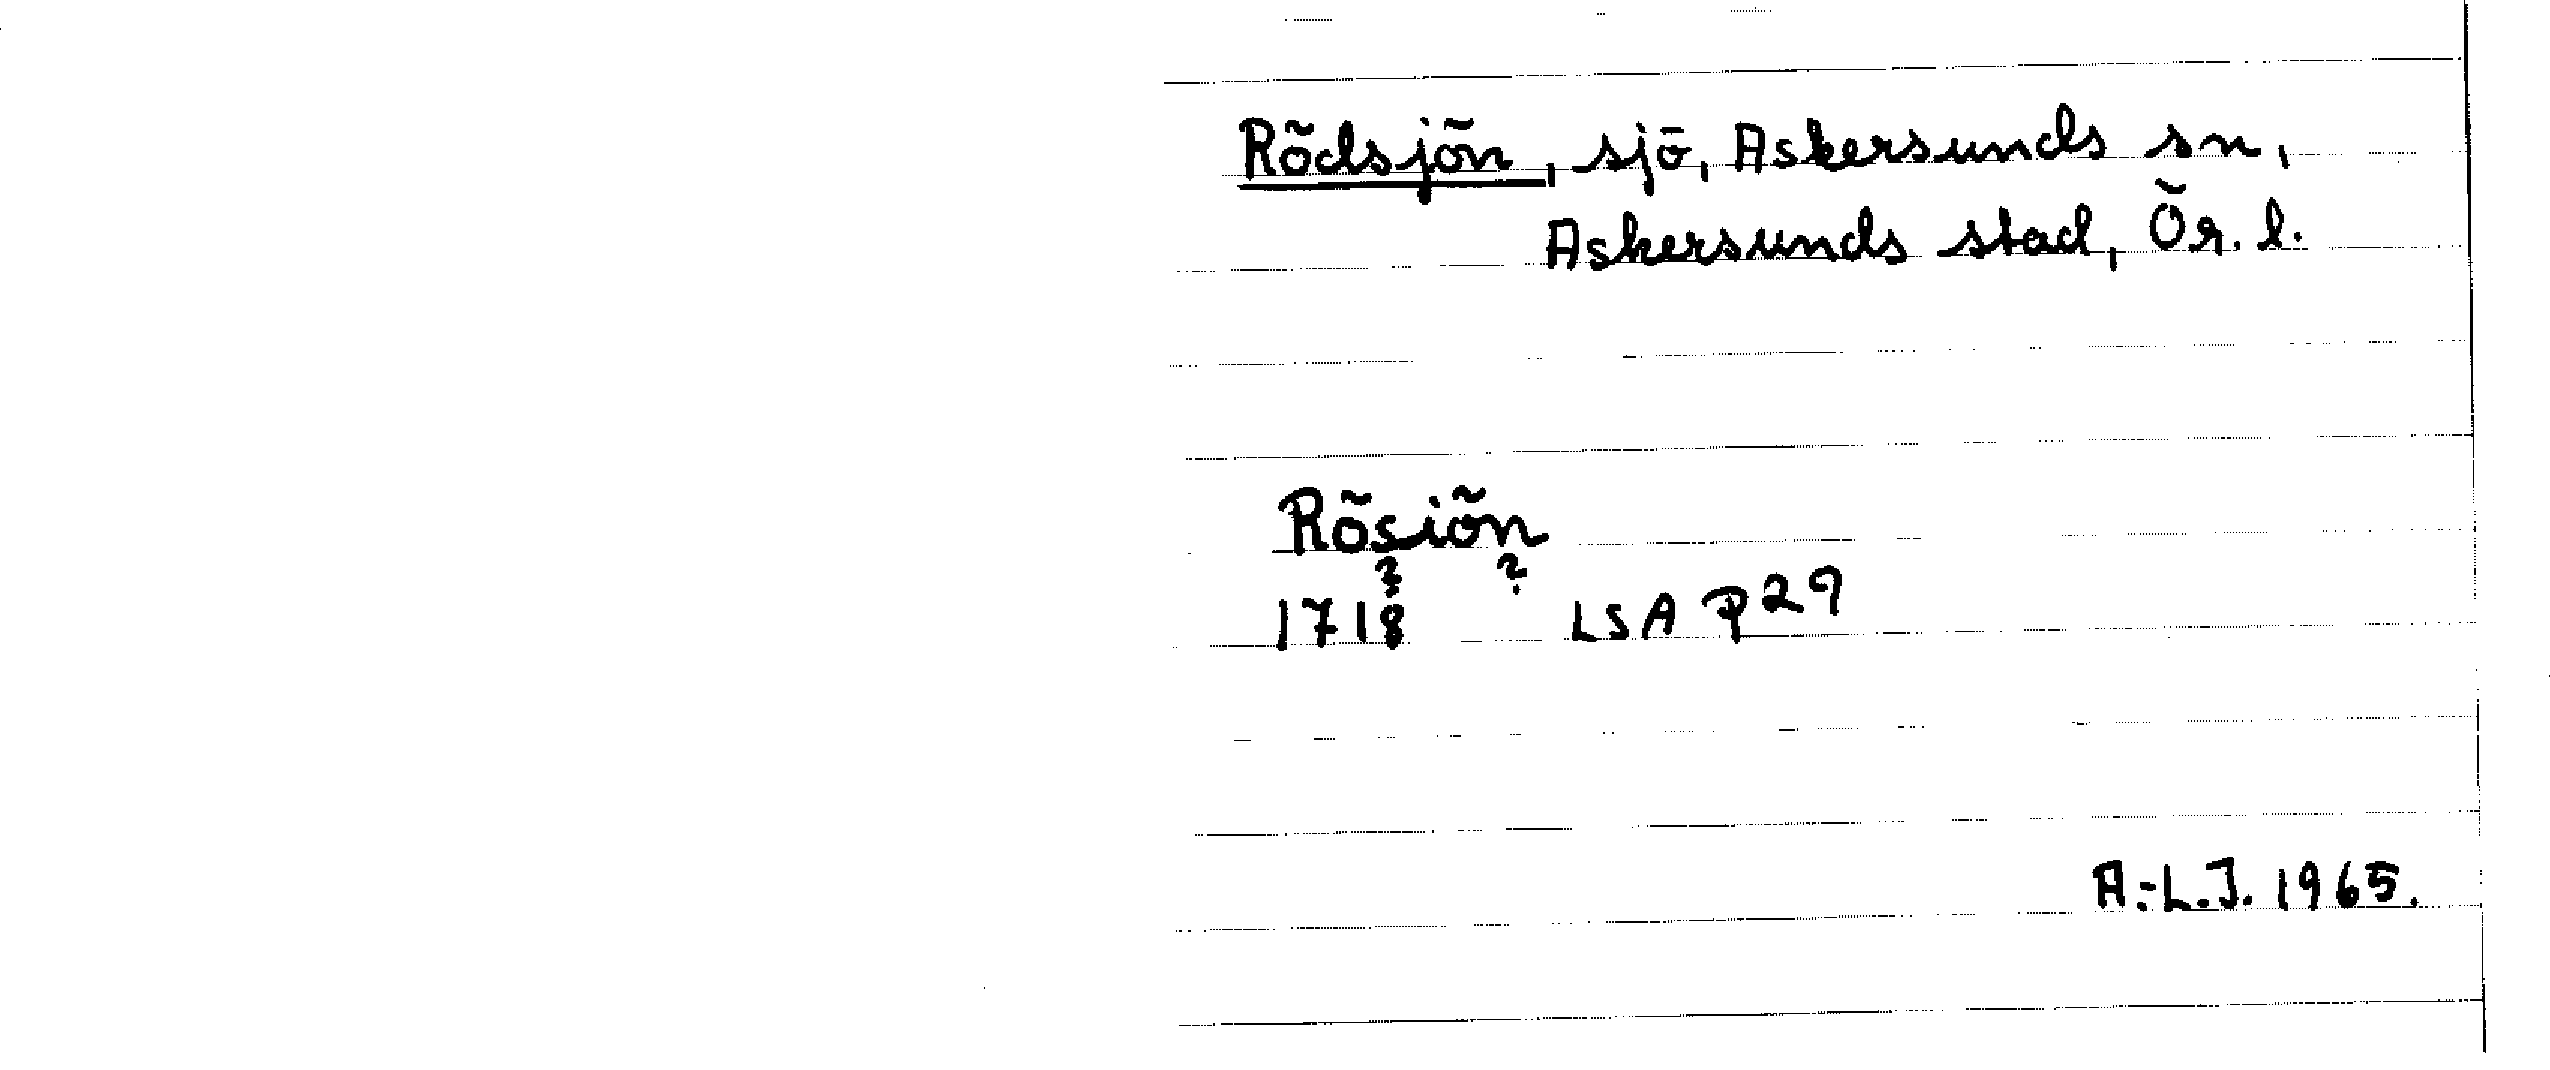 Rödsjön, sjö, Askersunds sn,
Askersunds stad, Ör. l.
Rösiön
? ?
1718 LSA P29
A:-L.J. 1965.